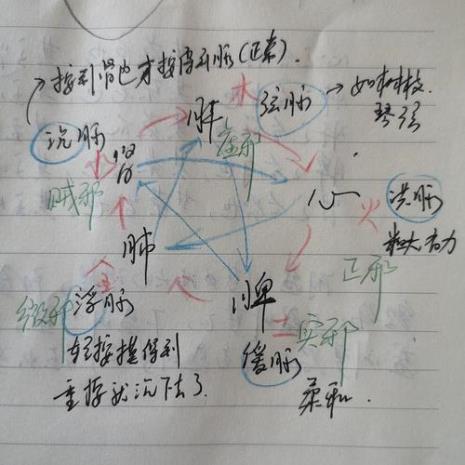 按到骨边才按得到脉(正常).
木
沉脉
肝
弦脉
如树枝.
琴弦
虚邪
水
肾
贼邪
心
火
洪脉
粗大有力
正邪
肺
金
微邪
浮脉
轻按摸得到
重按就沉下去了.
脾
土
实邪
缓脉
柔和.